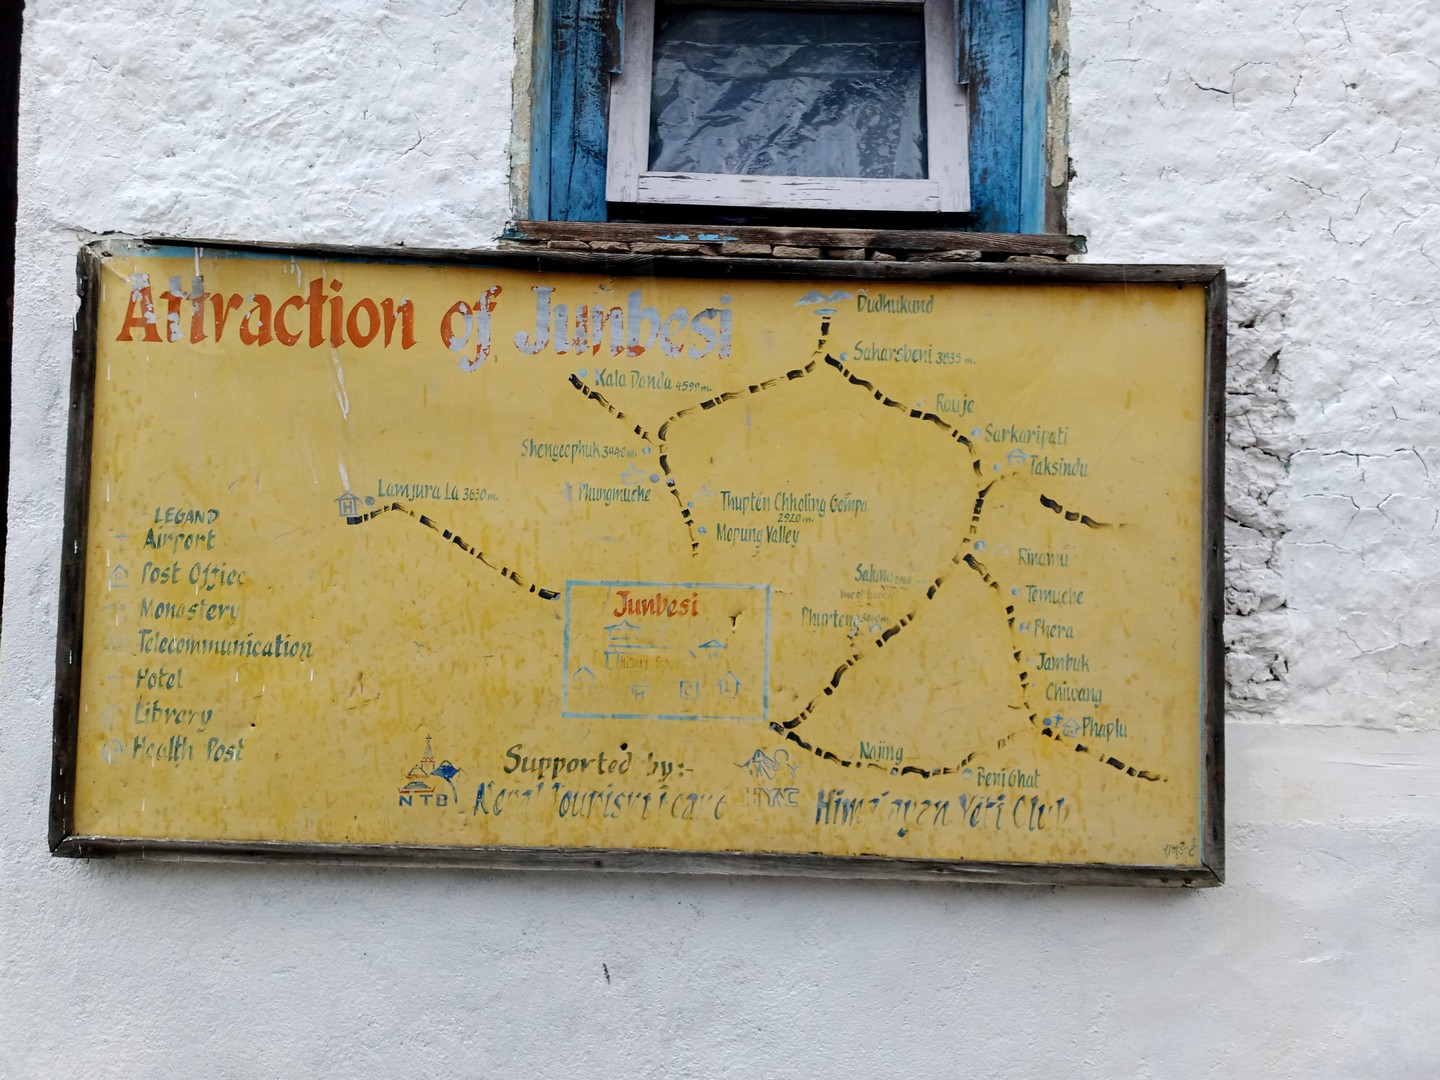 Attraction of Junbesi
Dudhukund
Saharsbeni 3835 m.
Kala Danda 4599 m.
Rauje
Sarkaripati
Taksindu
Shengephuk 3940 m.
Phungmuche
Thupten Chholing Gompa
2920 m.
Mopung Valley
Lamjura La 3630 m.
H
LEGAND
Airport
Post Office
Monastery
Telecommunication
Hotel
Library
Health Post
Junbesi
Rinamu
Salung
Temuche
Phurteng
Phera
Jambuk
Chiwang
Phaplu
Najing
Beni Ghat
Supported by:-
NTB
Himalayan Yeti Club